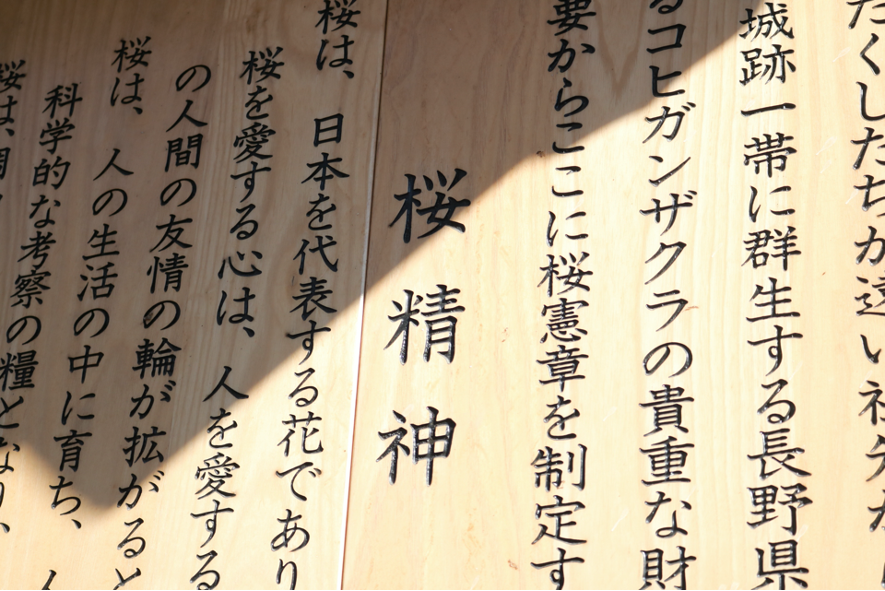 たくしたちが遠い祖先か
城跡一帯に群生する長野県
るコヒガンザクラの貴重な財
要からここに桜憲章を制定す
桜精神
桜は、日本を代表する花であり
桜を愛する心は、人を愛する
の人間の友情の輪が拡がると
桜は、人の生活の中に育ち、
科学的な考察の糧となり、
桜は、